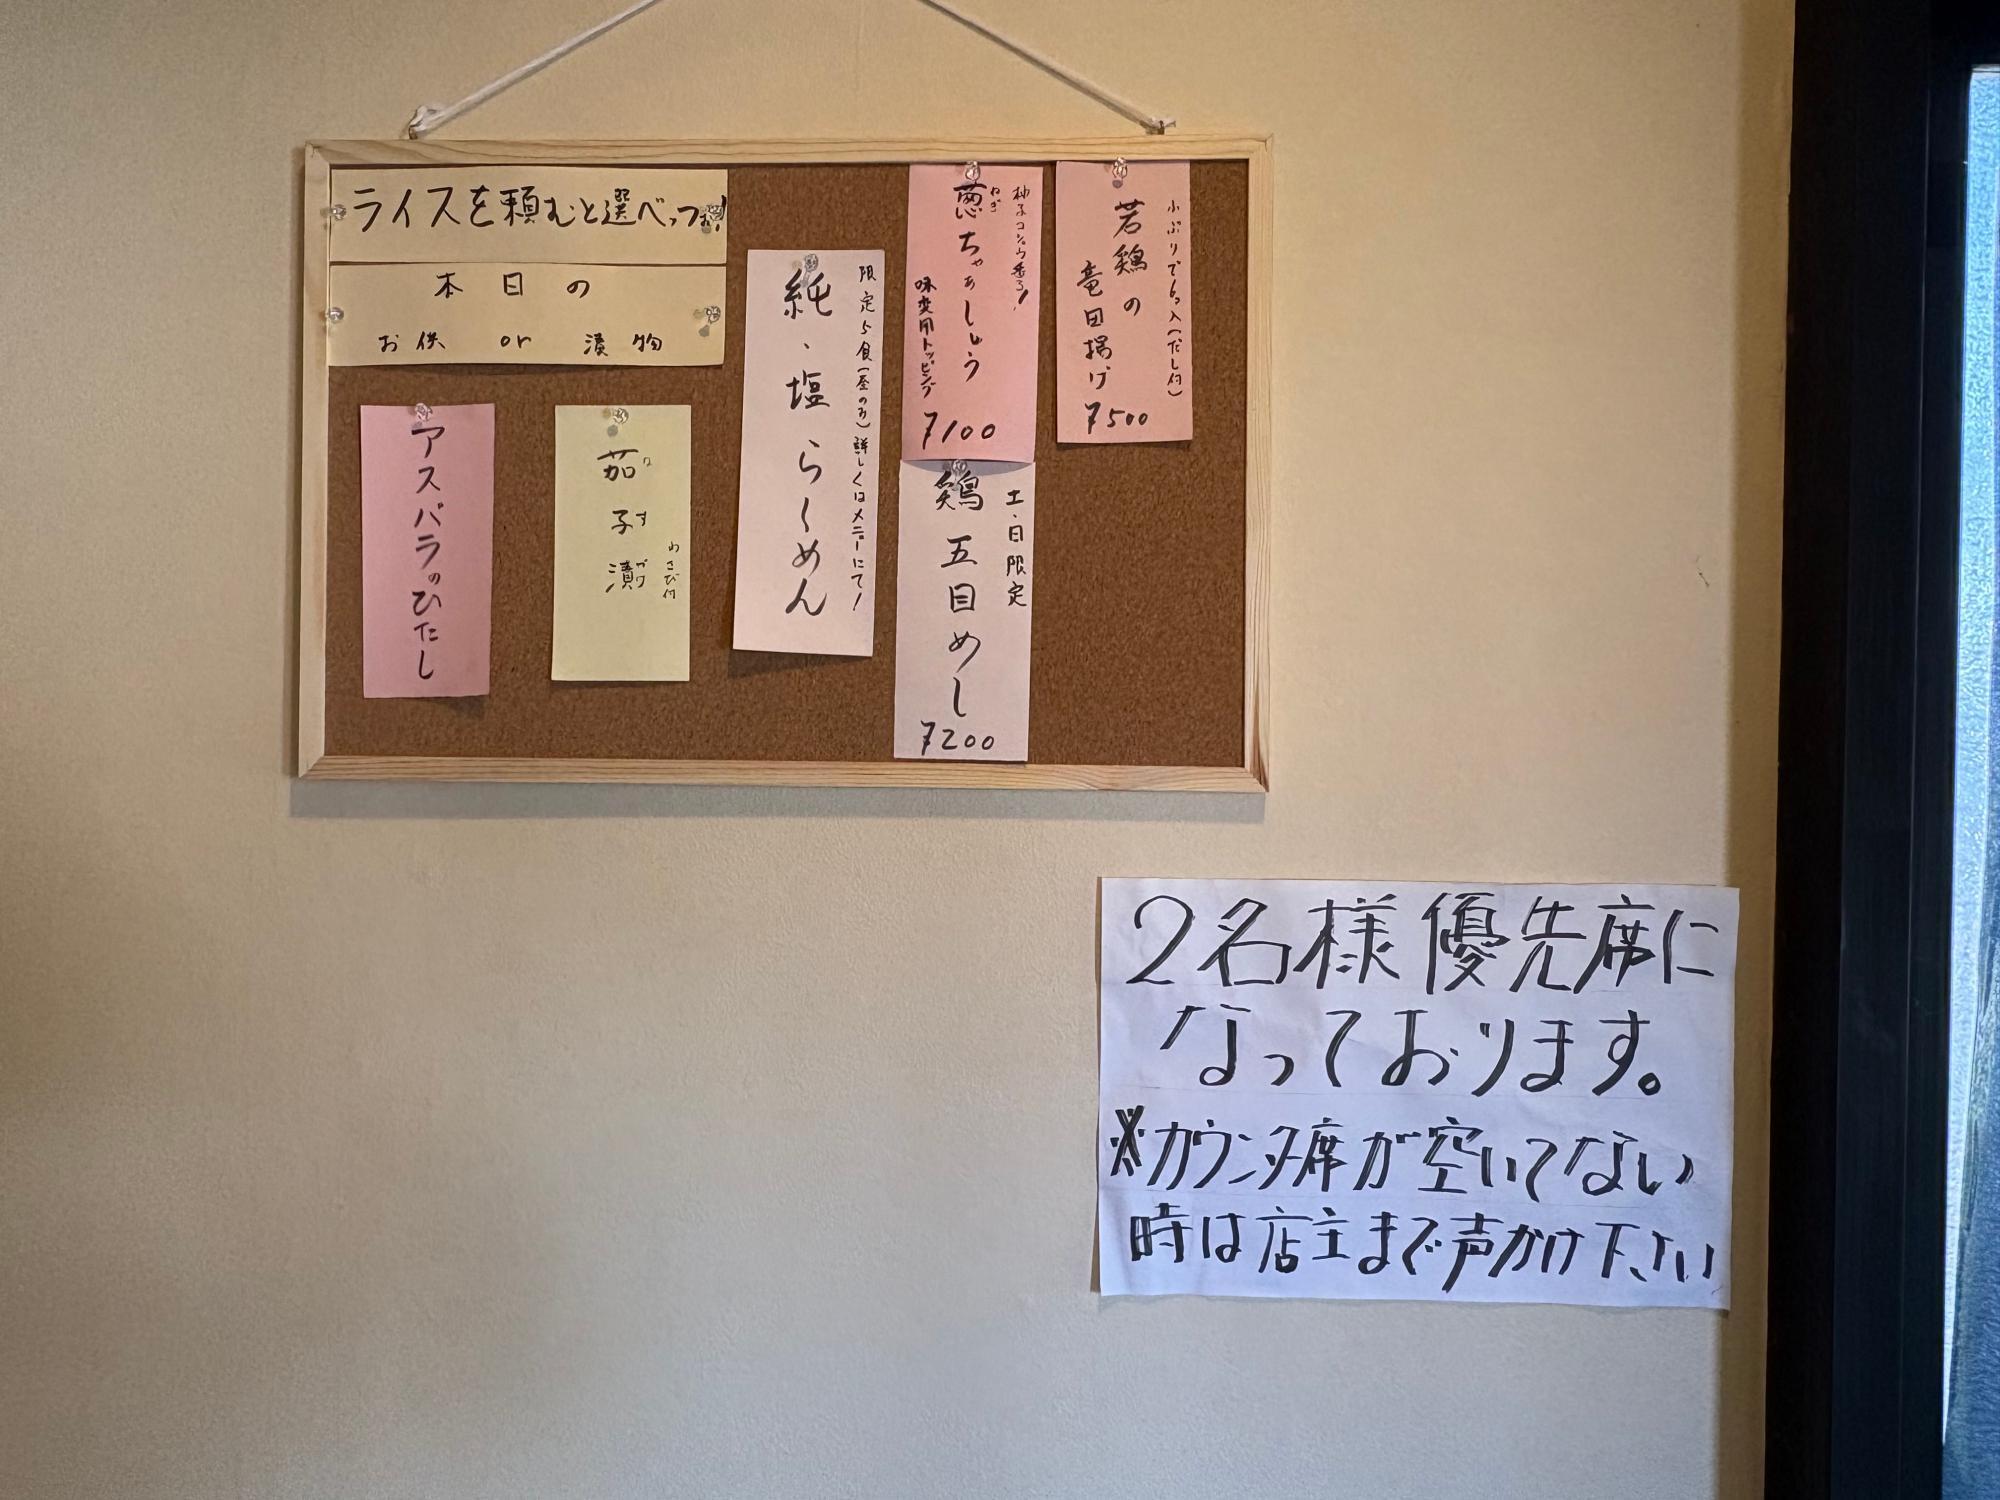 ライスを頼むと選べっつぉ!
本日の
お供 or 漬物
アスパラのひたし
茄子漬
なすづけ
わさび付
純・塩らーめん
限定5食(昼のみ)詳しくはメニューにて!
葱ちゃぁしゅう
ねぎ
柚子コショウ香る!
味変用トッピング
¥100
鶏五目めし
土・日限定
¥200
若鶏の
竜田揚げ
小ぶりで6コ入(だし付)
¥500
2名様優先席に
なっております。
※カウンター席が空いてない
時は店主まで声かけ下さい